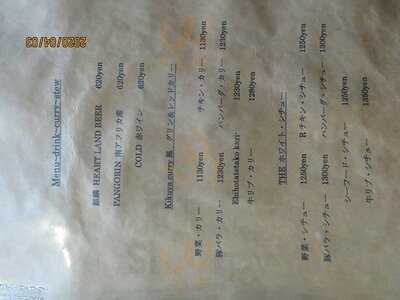 Menu-drink-curry-stew
HEART LAND BEER 620yen
PANGORIN 南アフリカ産 620yen
COLD 赤ワイン 620yen
Kikuya curry 風 グリン&レッドカリー
野菜・カリー 1130yen チキン・カリー 1130yen
豚バラ・カリー 1230yen ハンバーグ・カリー 1230yen
Ebihotatetako kari- 1230yen
牛リブ・カリー 1280yen
THE ホワイト・シチュー
野菜・シチュー 1250yen Rチキン・シチュー 1250yen
豚バラ・シチュー 1300yen ハンバーグ・シチュー 1300yen
シーフード・シチュー 1250yen
牛リブ・シチュー 1300yen
2020/04/03